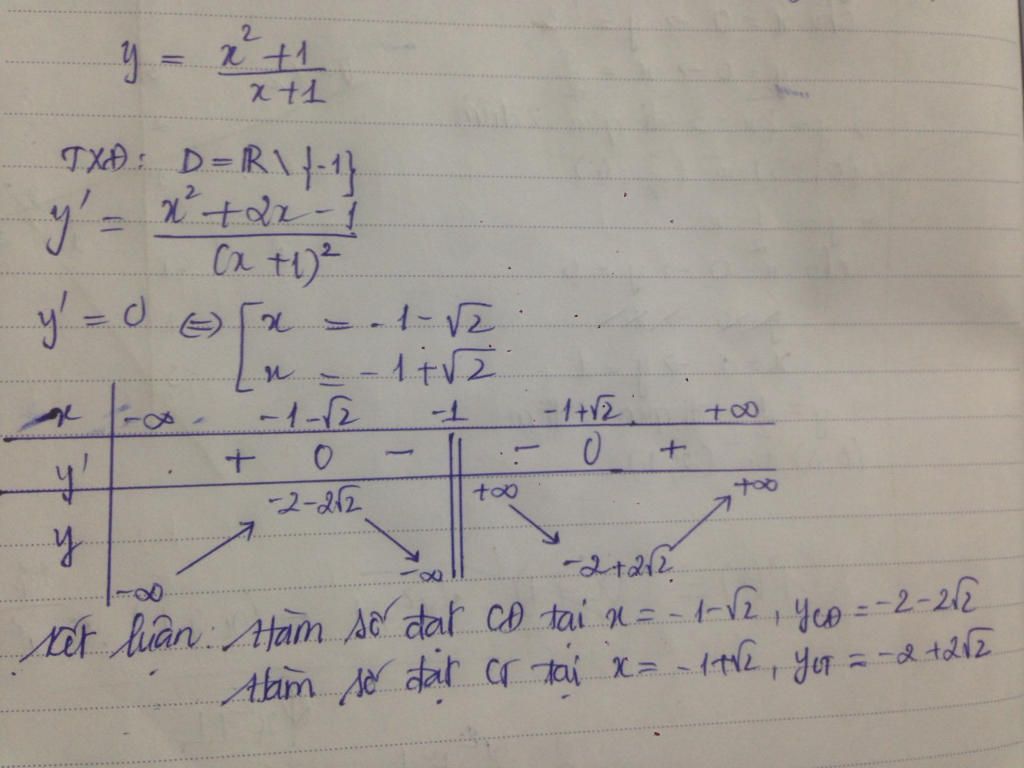 y = x² + 1 / x + 1
TXĐ: D = ℝ \ {-1}
y' = x² + 2x - 1 / (x + 1)²
y' = 0 ⇔ [ x = -1 - √2
x = -1 + √2
x -∞ -1-√2 -1 -1+√2 +∞
y' + 0 - || - 0 +
-2-2√2 +∞ +∞
y
-∞ -∞ -2+2√2
Kết luận: Hàm số đạt CĐ tại x = -1-√2, yCĐ = -2-2√2
Hàm số đạt CT tại x = -1+√2, yCT = -2+2√2